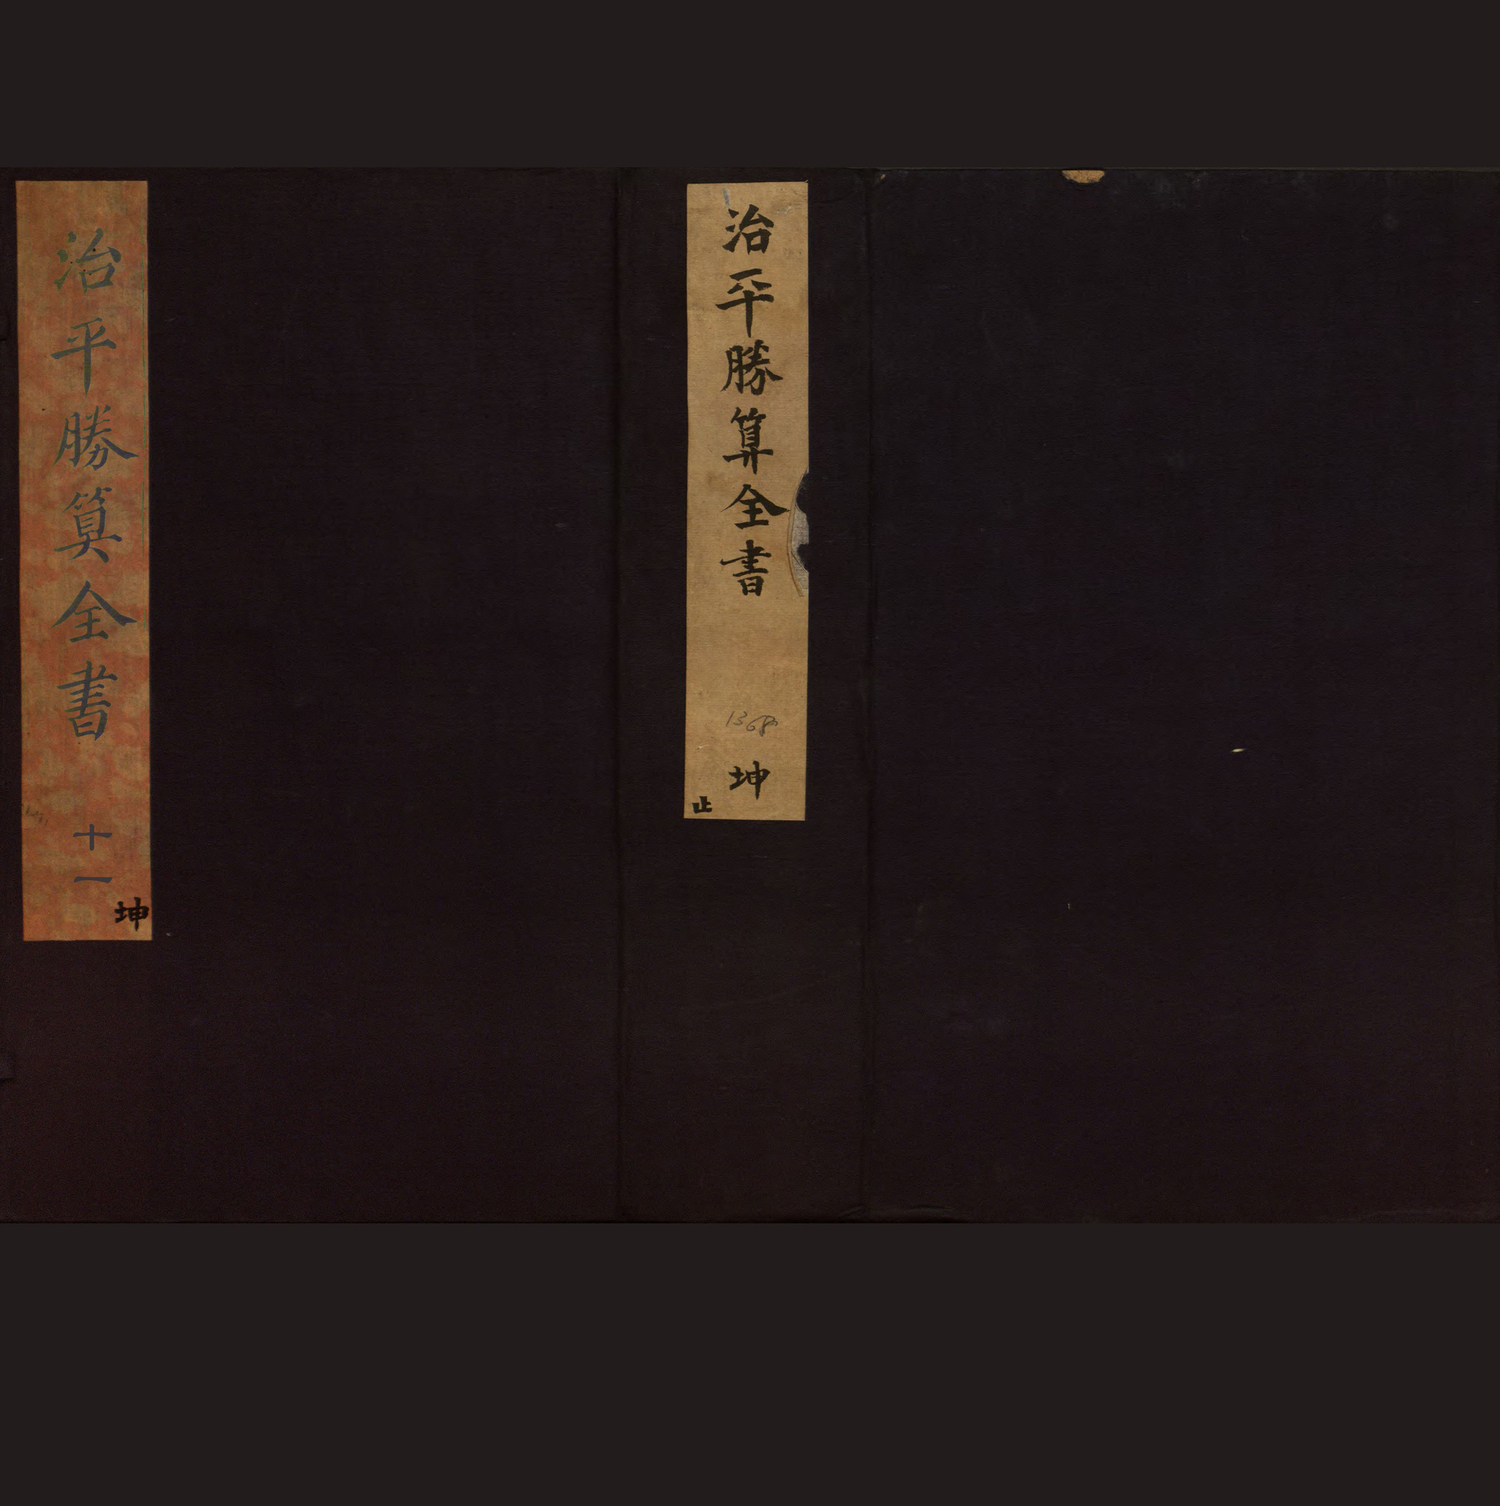 治平勝算全書
坤
止
治平勝算全書
十一
坤